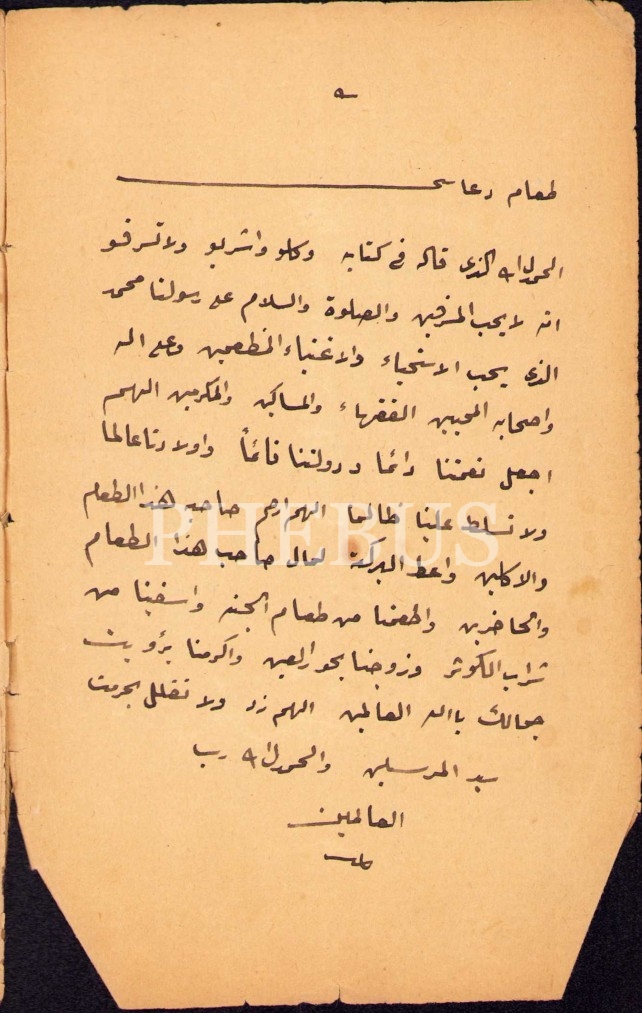 طعام دعاسى
الحمدلله الذى قال فى كتابه وكلو واشربو ولا تسرفو
انه لا يحب المسرفين والصلوة والسلام على رسولنا محمد
الذى يحب الاسخياء والاغنياء المنطعمين وعلى اله
واصحابه المحبين الفقهاء والمساكين والمكرمين اللهم
اجعل نعمتنا دائما ودولتنا قائماً واولادنا عالما
ولا تسلط علينا ظالما اللهم ارحم صاحب هذا الطعام
والاكلين واعط البركة لمال صاحب هذا الطعام
والحاضرين واطعمنا من طعام الجنه واسقينا من
شراب الكوثر وزوجنا بحور العين واكرمنا برؤيت
جمالك يا اله العالمين اللهم زد ولا تقلل بحرمت
سيد المرسلين والحمدلله رب
العالمين
PHEBUS